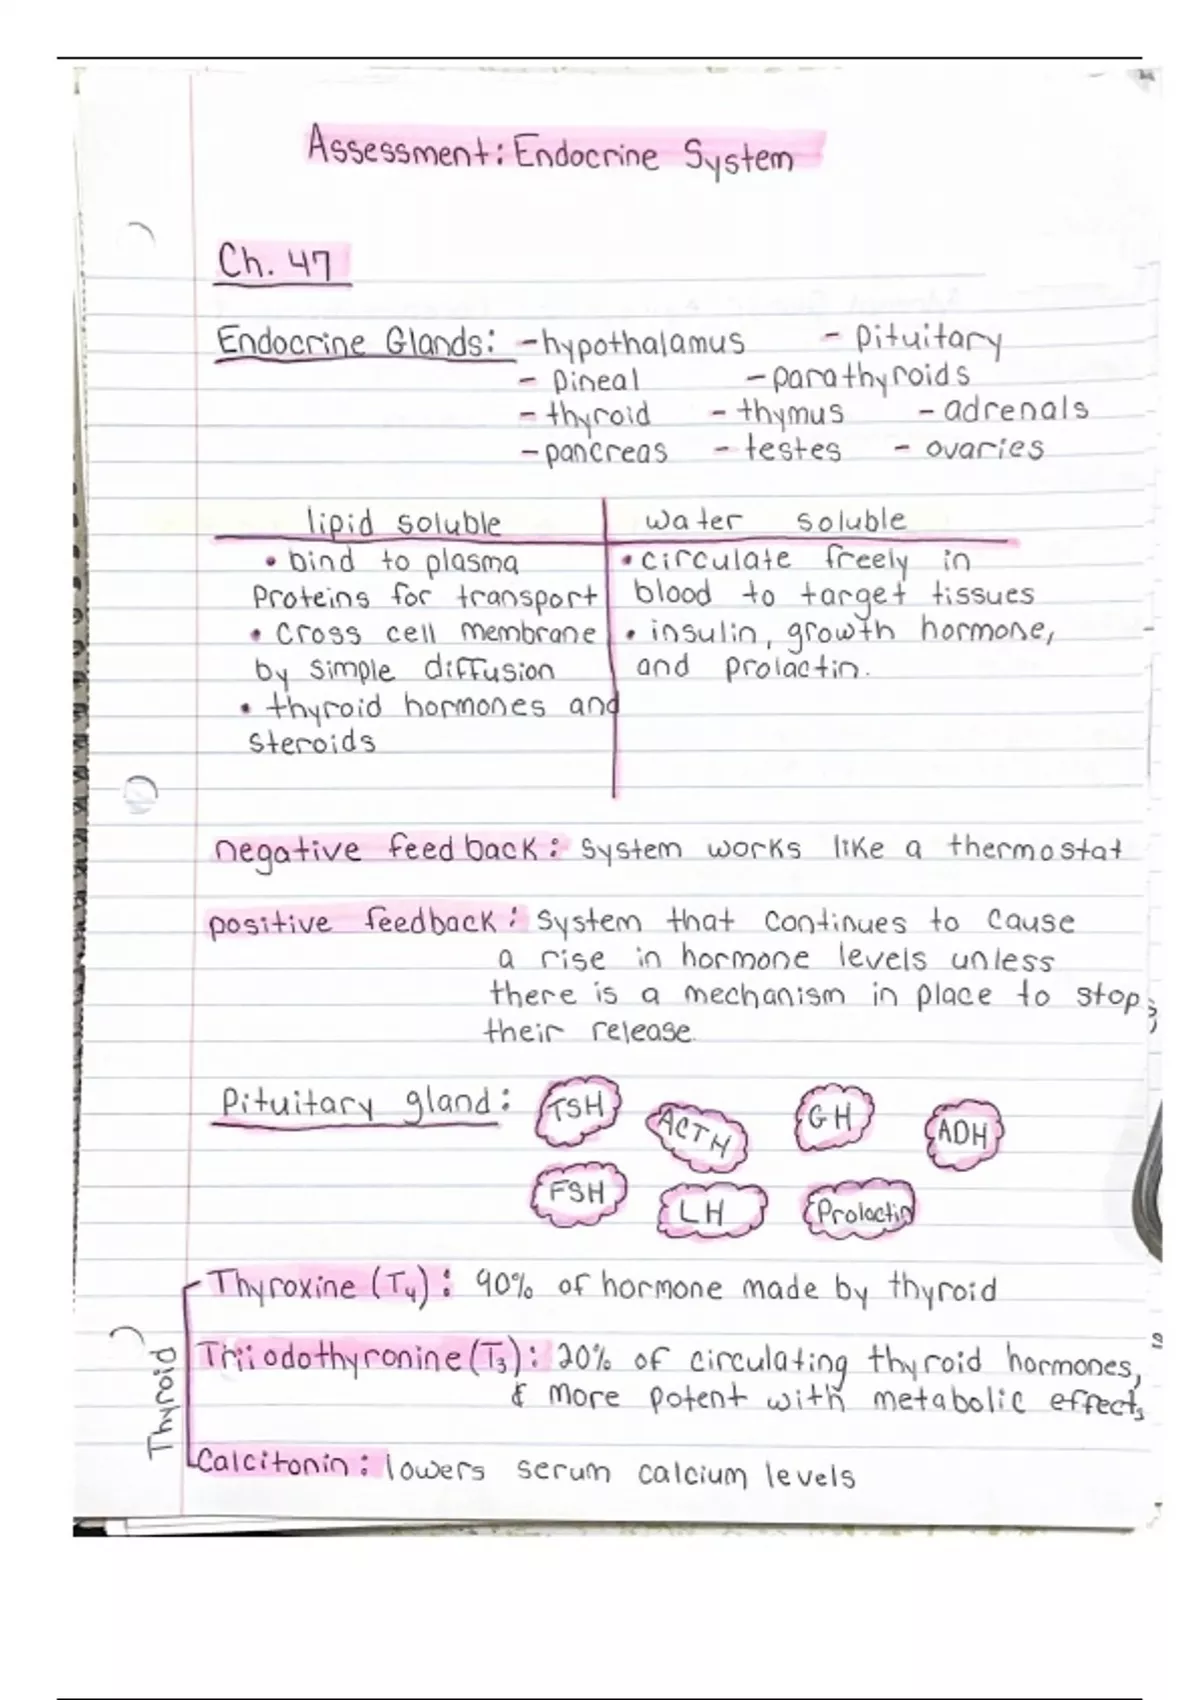 Assessment: Endocrine System
Ch. 47
Endocrine Glands: - hypothalamus - pituitary
- pineal - parathyroids
- thyroid - thymus - adrenals
- pancreas - testes - ovaries
lipid soluble
• bind to plasma
Proteins for transport
• cross cell membrane
by simple diffusion
• thyroid hormones and
steroids
water soluble
• circulate freely in
blood to target tissues
• insulin, growth hormone,
and prolactin.
negative feedback: System works like a thermostat
positive feedback: System that continues to cause
a rise in hormone levels unless
there is a mechanism in place to stop
their release.
Pituitary gland: TSH ACTH GH ADH
FSH LH Prolactin
Thyroid
Thyroxine (T4): 90% of hormone made by thyroid
Triiodothyronine (T3): 20% of circulating thyroid hormones,
& more potent with metabolic effects
Calcitonin: lowers serum calcium levels